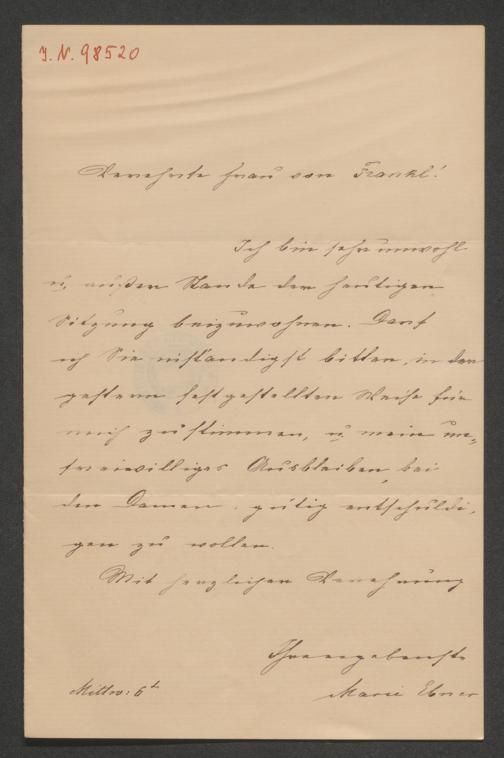 J. N. 98520
Verehrte Frau von Frankl!
Ich bin sehr unwohl
u. außer Stande der heutigen
Sitzung beizuwohnen. Darf
ich Sie inständigst bitten, in der
gestern festgestellten Weise für
mich zu stimmen, u. mein un„
freiwilliges Ausbleiben bei
den Damen gütig entschuldi„
gen zu wollen.
Mit herzlicher Verehrung
Ihre ergebenste
Mittw: 6t Marie Ebner